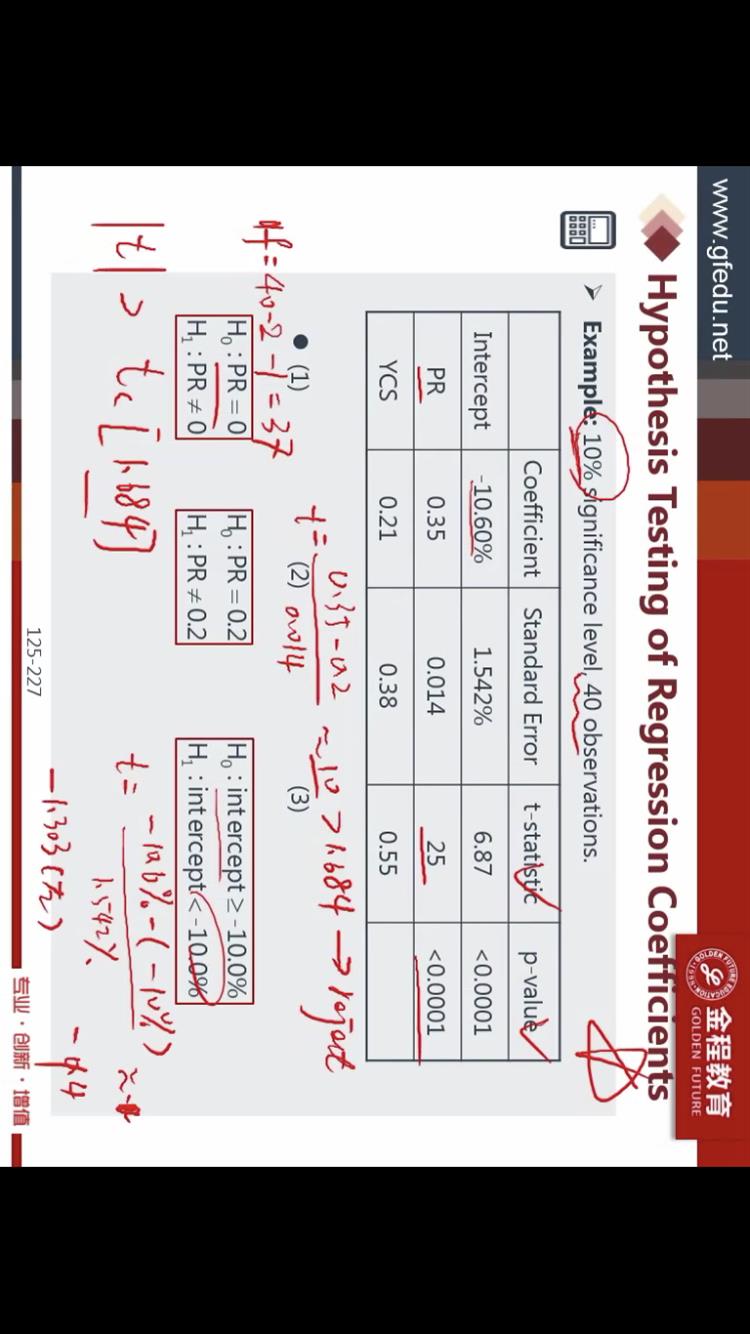 www.gfedu.net
金程教育
GOLDEN FUTURE
·GOLDEN FUTURE EDUCATION·
Hypothesis Testing of Regression Coefficients
➤ Example: 10% significance level, 40 observations.
Coefficient Standard Error t-statistic p-value
Intercept -10.60% 1.542% 6.87 <0.0001
PR 0.35 0.014 25 <0.0001
YCS 0.21 0.38 0.55
t = (0.35-0.2)/0.014 ≈ 10 > 1.684 → reject
df = 40-2-1 = 37
● (1) (2) (3)
H0 : PR = 0 H0 : PR = 0.2 H0 : intercept ≥ -10.0%
H1 : PR ≠ 0 H1 : PR ≠ 0.2 H1 : intercept < -10.0%
|t| > tc [1.684]
t = (-10.6%-(-10%))/1.542% ≈
-1.303(左)
125-227
专业·创新·增值